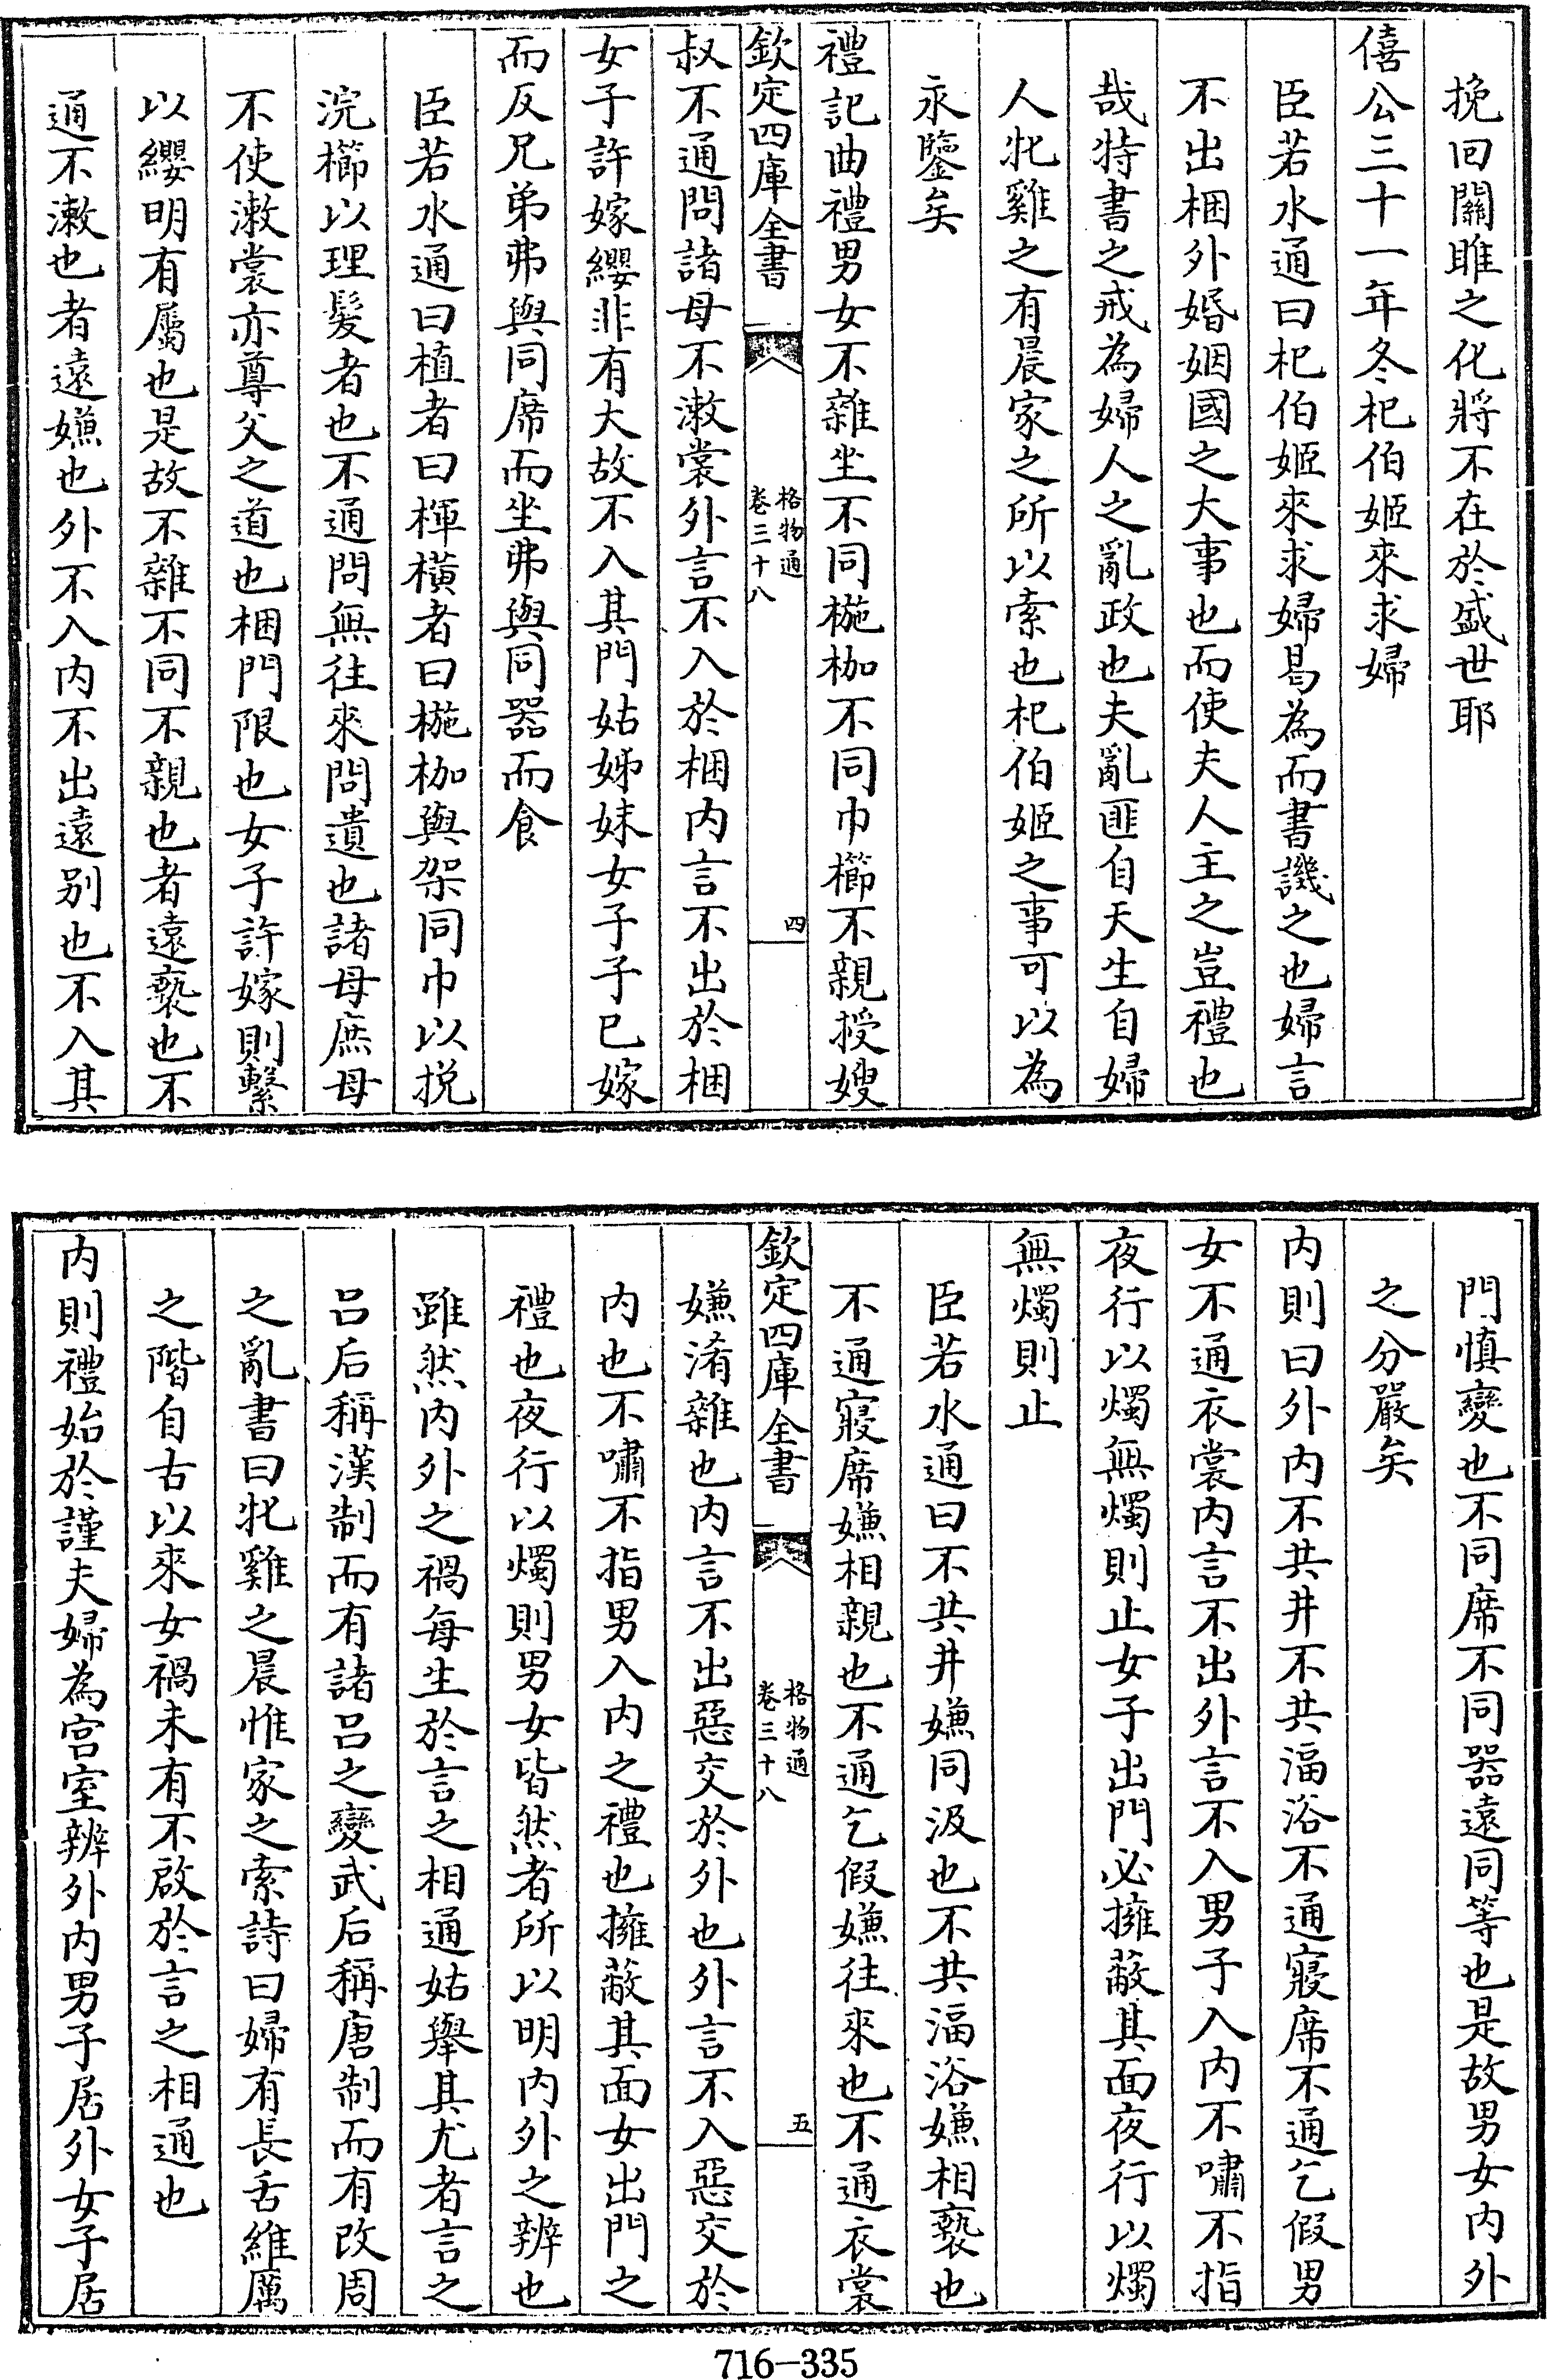 挽回關雎之化將不在於盛世耶
僖公三十一年冬杞伯姬來求婦
臣若水通曰杞伯姬來求婦曷為而書譏之也婦言
不出梱外婚姻國之大事也而使夫人主之豈禮也
哉特書之戒為婦人之亂政也夫亂匪自天生自婦
人牝雞之有晨家之所以索也杞伯姬之事可以為
永鑒矣
禮記曲禮男女不雜坐不同椸枷不同巾櫛不親授嫂
欽定四庫全書
格物通
卷三十八
四
叔不通問諸母不漱裳外言不入於梱内言不出於梱
女子許嫁纓非有大故不入其門姑姊妹女子子已嫁
而反兄弟弗與同席而坐弗與同器而食
臣若水通曰植者曰楎橫者曰椸枷與架同巾以挩
浣櫛以理髮者也不通問無往來問遺也諸母庶母
不使漱裳亦尊父之道也梱門限也女子許嫁則繫
以纓明有屬也是故不雜不同不親也者遠褻也不
通不漱也者遠嫌也外不入内不出遠别也不入其
門慎變也不同席不同器遠同等也是故男女内外
之分嚴矣
内則曰外内不共井不共湢浴不通寢席不通乞假男
女不通衣裳内言不出外言不入男子入内不嘯不指
夜行以燭無燭則止女子出門必擁蔽其面夜行以燭
無燭則止
臣若水通曰不共井嫌同汲也不共湢浴嫌相褻也
不通寢席嫌相親也不通乞假嫌往來也不通衣裳
欽定四庫全書
格物通
卷三十八
五
嫌淆雜也内言不出惡交於外也外言不入惡交於
内也不嘯不指男入内之禮也擁蔽其面女出門之
禮也夜行以燭則男女皆然者所以明内外之辨也
雖然内外之禍每生於言之相通姑舉其尤者言之
吕后稱漢制而有諸吕之變武后稱唐制而有改周
之亂書曰牝雞之晨惟家之索詩曰婦有長舌維厲
之階自古以來女禍未有不啟於言之相通也
内則禮始於謹夫婦為宫室辨外内男子居外女子居
716-335